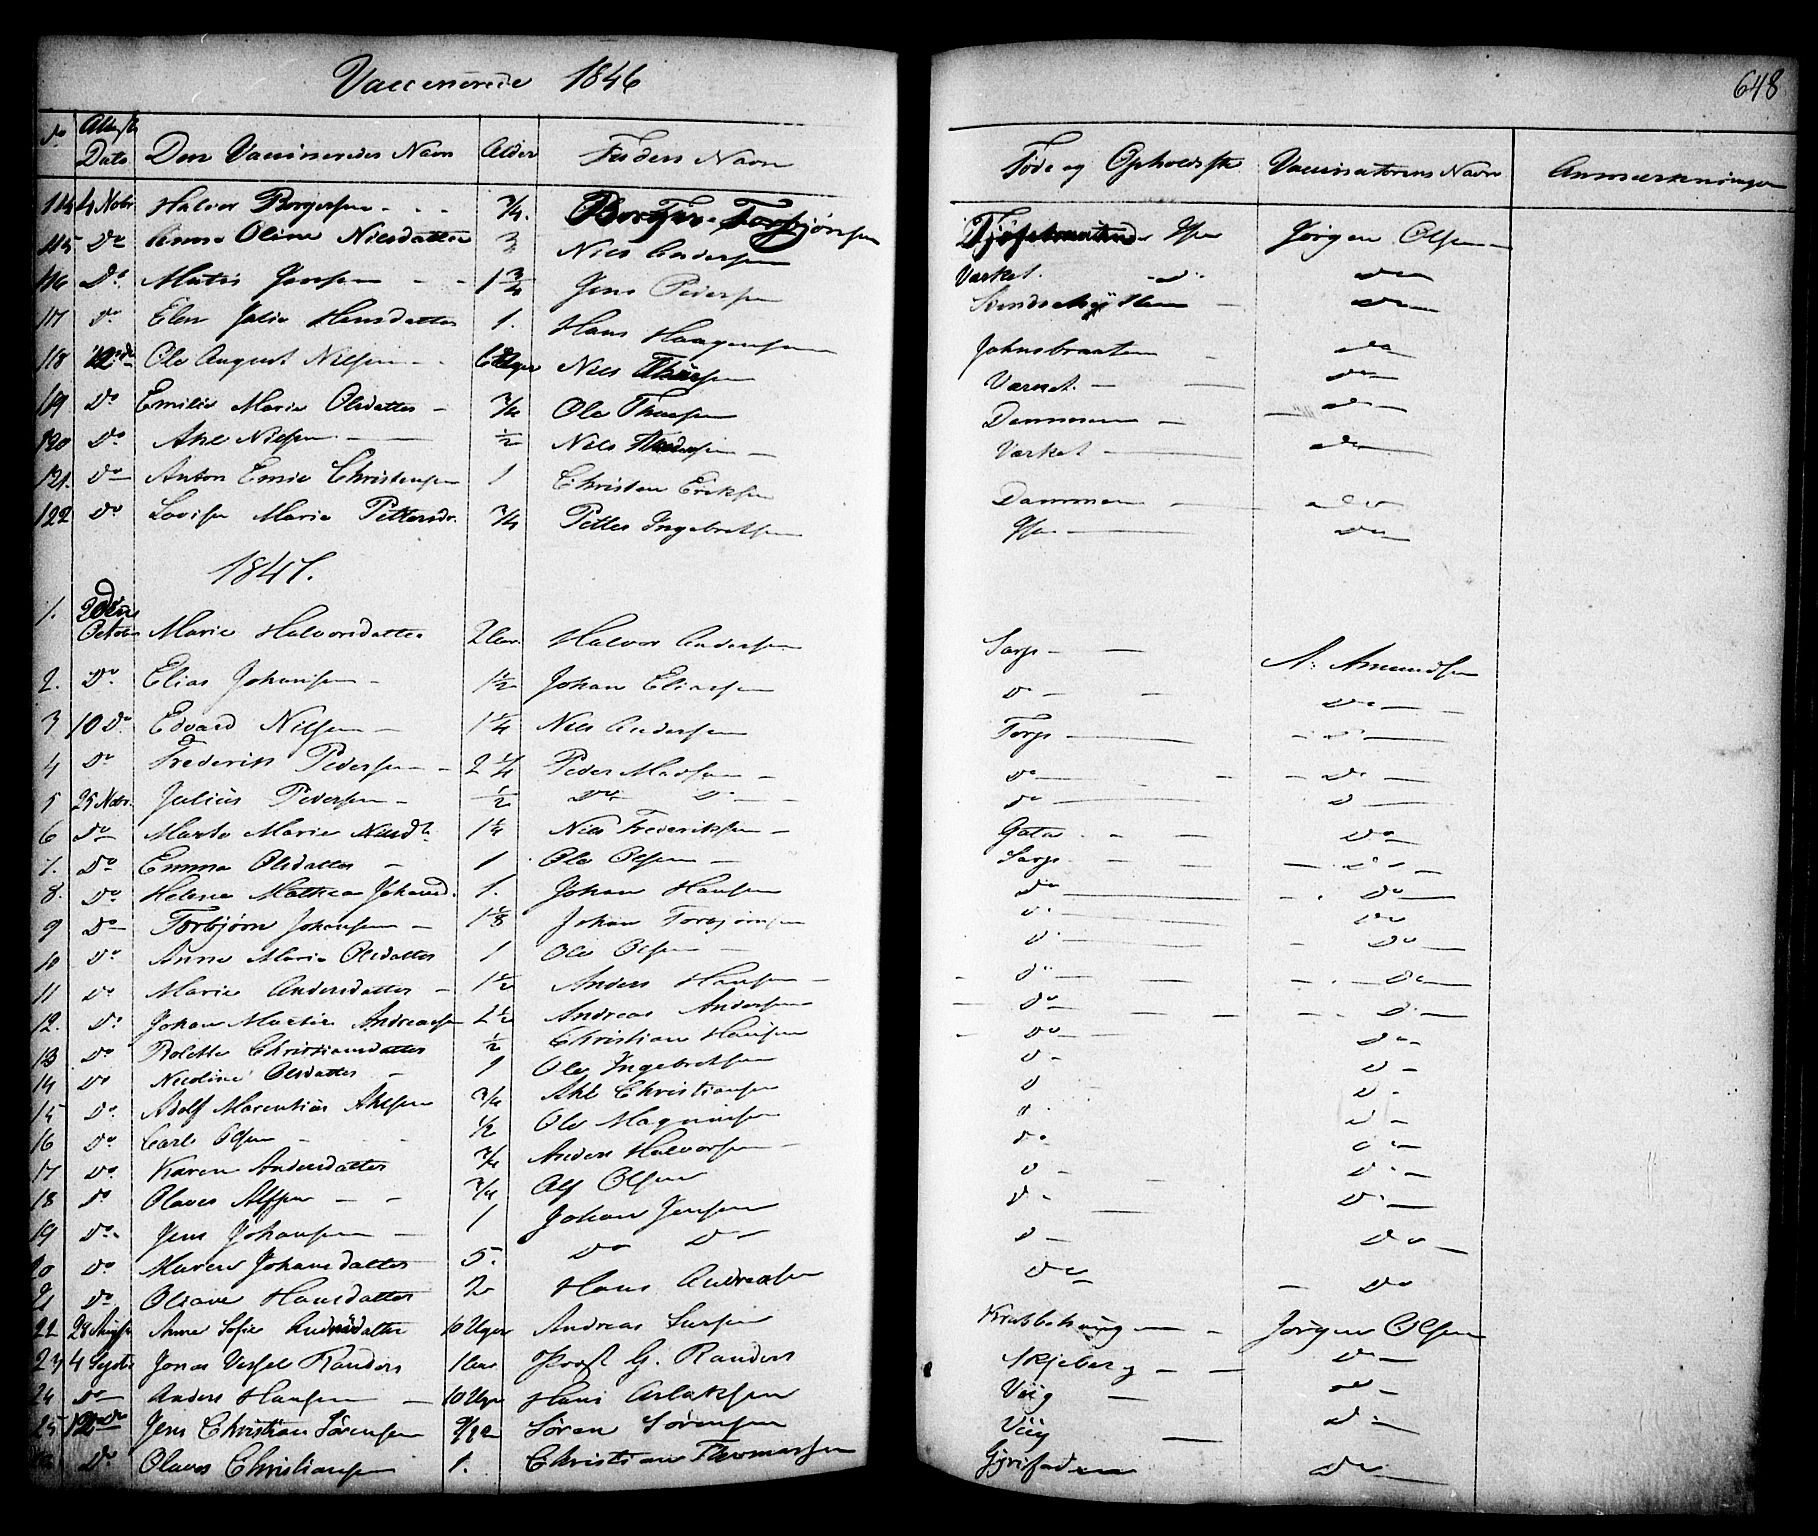 Vaccinerede 1846
648
No Attest Dato Den Vaccineredes Navn Alder Faders Navn Føde og Opholdsste Vaccinatorens Navn Anmærkninger
114 4 Novbr Halvor Borgersen 3/4. Borger Torbjørnsen Ysen Jørgen Olsen
115 Do Anne Oline Nilsdatter 3/4 Nils Andersen Værket Do
116 Do Matis Jensen 1 3/4 Jens Pedersen Do
117 Do Elen Julie Hansdatter 1. Hans Haagensen Johnsbraaten Do
118 12 do Ole August Nilsen 6 Uger Nils Værket Do
119 Do Emilie Marie Olsdatter 3/4 Ole Dammen Do
120 Do Axl Nilsen 1/2 Nils Værket Do
121. Do Anton Emil Christensen 1 Christen Eriksen Dammen Do
122 Do Lovise Marie Pettersdr. 3/4 Petter Ingebretsen Ysen Do
1847.
1. October Marie Halvorsdatter 2 Aar Halvor Andersen Sarps A. Amundsen
2. Do Elias Johansen 1 1/2 Johan Eliassen Do Do
3 10 Do Edvard Nilsen 1 1/4 Nils Andersen Torps Do
4 Do Frederik Pedersen 2 1/4 Peder Madsen Do Do
5 25 Novbr. Julius Pedersen 1/2 Do Do Do Do
6 Do Marte Marie Nilsdtr 1 1/4 Nils Frederiksen Do
7. Do Emma Olsdatter 1 Ole Olsen Sarps Do
8. Do Helene Mathea Johansd. 1. Johan Hansen Do Do
9 Do Torbjørn Johansen 1 1/8 Johan Torbjørnsen Do Do
10 Do Anne Marie Olsdatter 1 Ole Olsen Do Do
11 Do Marie Andersdatter 1 1/2 Anders Hansen Do Do
12. Do Johan Martin Andreassen 2 1/2 Andreas Andersen Do Do
13 Do Bolette Christiansdatter 1/2 Christian Hansen Do Do
14 Do Nicoline Olsdatter 1 Ole Ingebretsen Do Do
15 Do Adolf Marentius Axelsen 3/4 Axl Christiansen Do Do
16 Do Carl Olsen 1/2 Ole Magnusen Do Do
17 Do Karen Andersdatter 3/4 Anders Halvorsen Do Do
18 Do Olaves Alfsen 3/4 Alf Olsen Do Do
19 Do Jens Johansen 1 Johan Jensen Do Do
20 Do Maren Johansdatter 5. Do Do Do Do
21 Do Oliave Hansdatter 2 Hans Andreasen Do Do
22 28 August Anne Sofie Andreasdatter 10 Uger Andreas Krabbehaug Jørgen Olsen
23 4 Septbr Jonas Vessel Randers 1 Aar Provst G. Randers Skjeberg Do
24 Do Anders Hansen 10 Uger Hans Arlaksen Viig Do
25 12 do Jens Christian Sørensen 9/12 Søren Sørensen Viig Do
Do Olaves Christiansen 1. Christian Thomassen Do